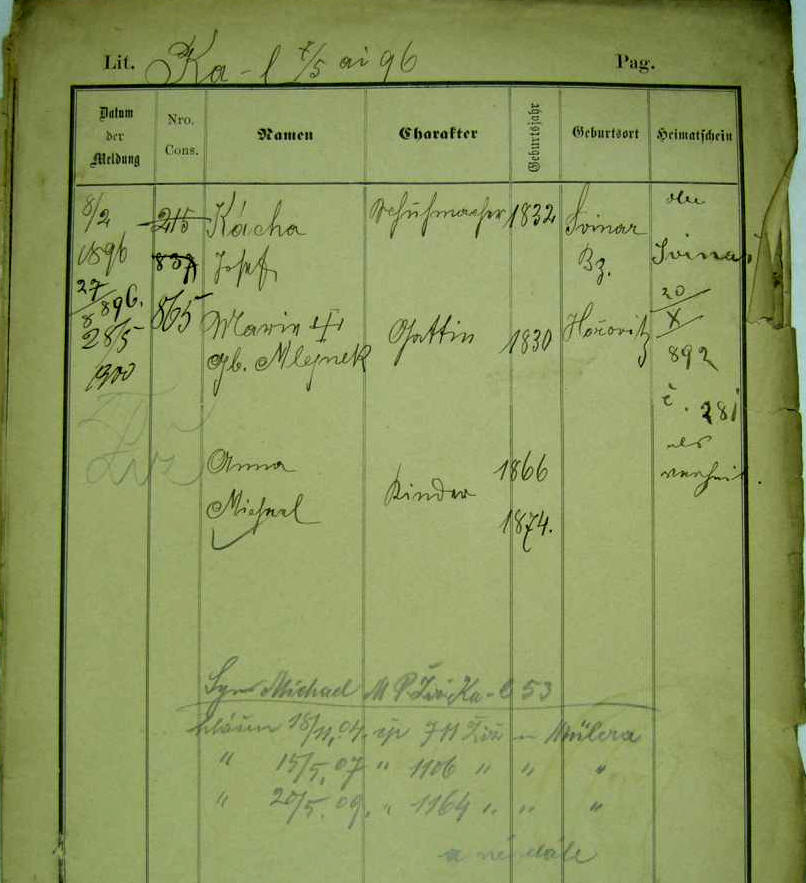 Lit. Ka-l 7/5 ai 96 Pag.
Datum der Meldung
Nro. Cons.
Namen
Charakter
Geburtsjahr
Geburtsort
Heimatschein
8/2 1896 215 Kácha Josef Schuhmacher 1832 Svinar Bz. Svinař
837
27/8 896. 865
28/5 1900 Marie † Gattin 1830 Hořovitz 20/X 892
gb. Mlejnek
č. 281
Žiž
als
Anna 1866
Kinder
Michael 1874.
Syn Michael M P Žiž Ka-l 53
hlášen 18/11.04. čp 711 Žiž u Müllera
" 15/5.07 " 1106 " " "
" 20/5.09. " 1164 " " "
a ne dále